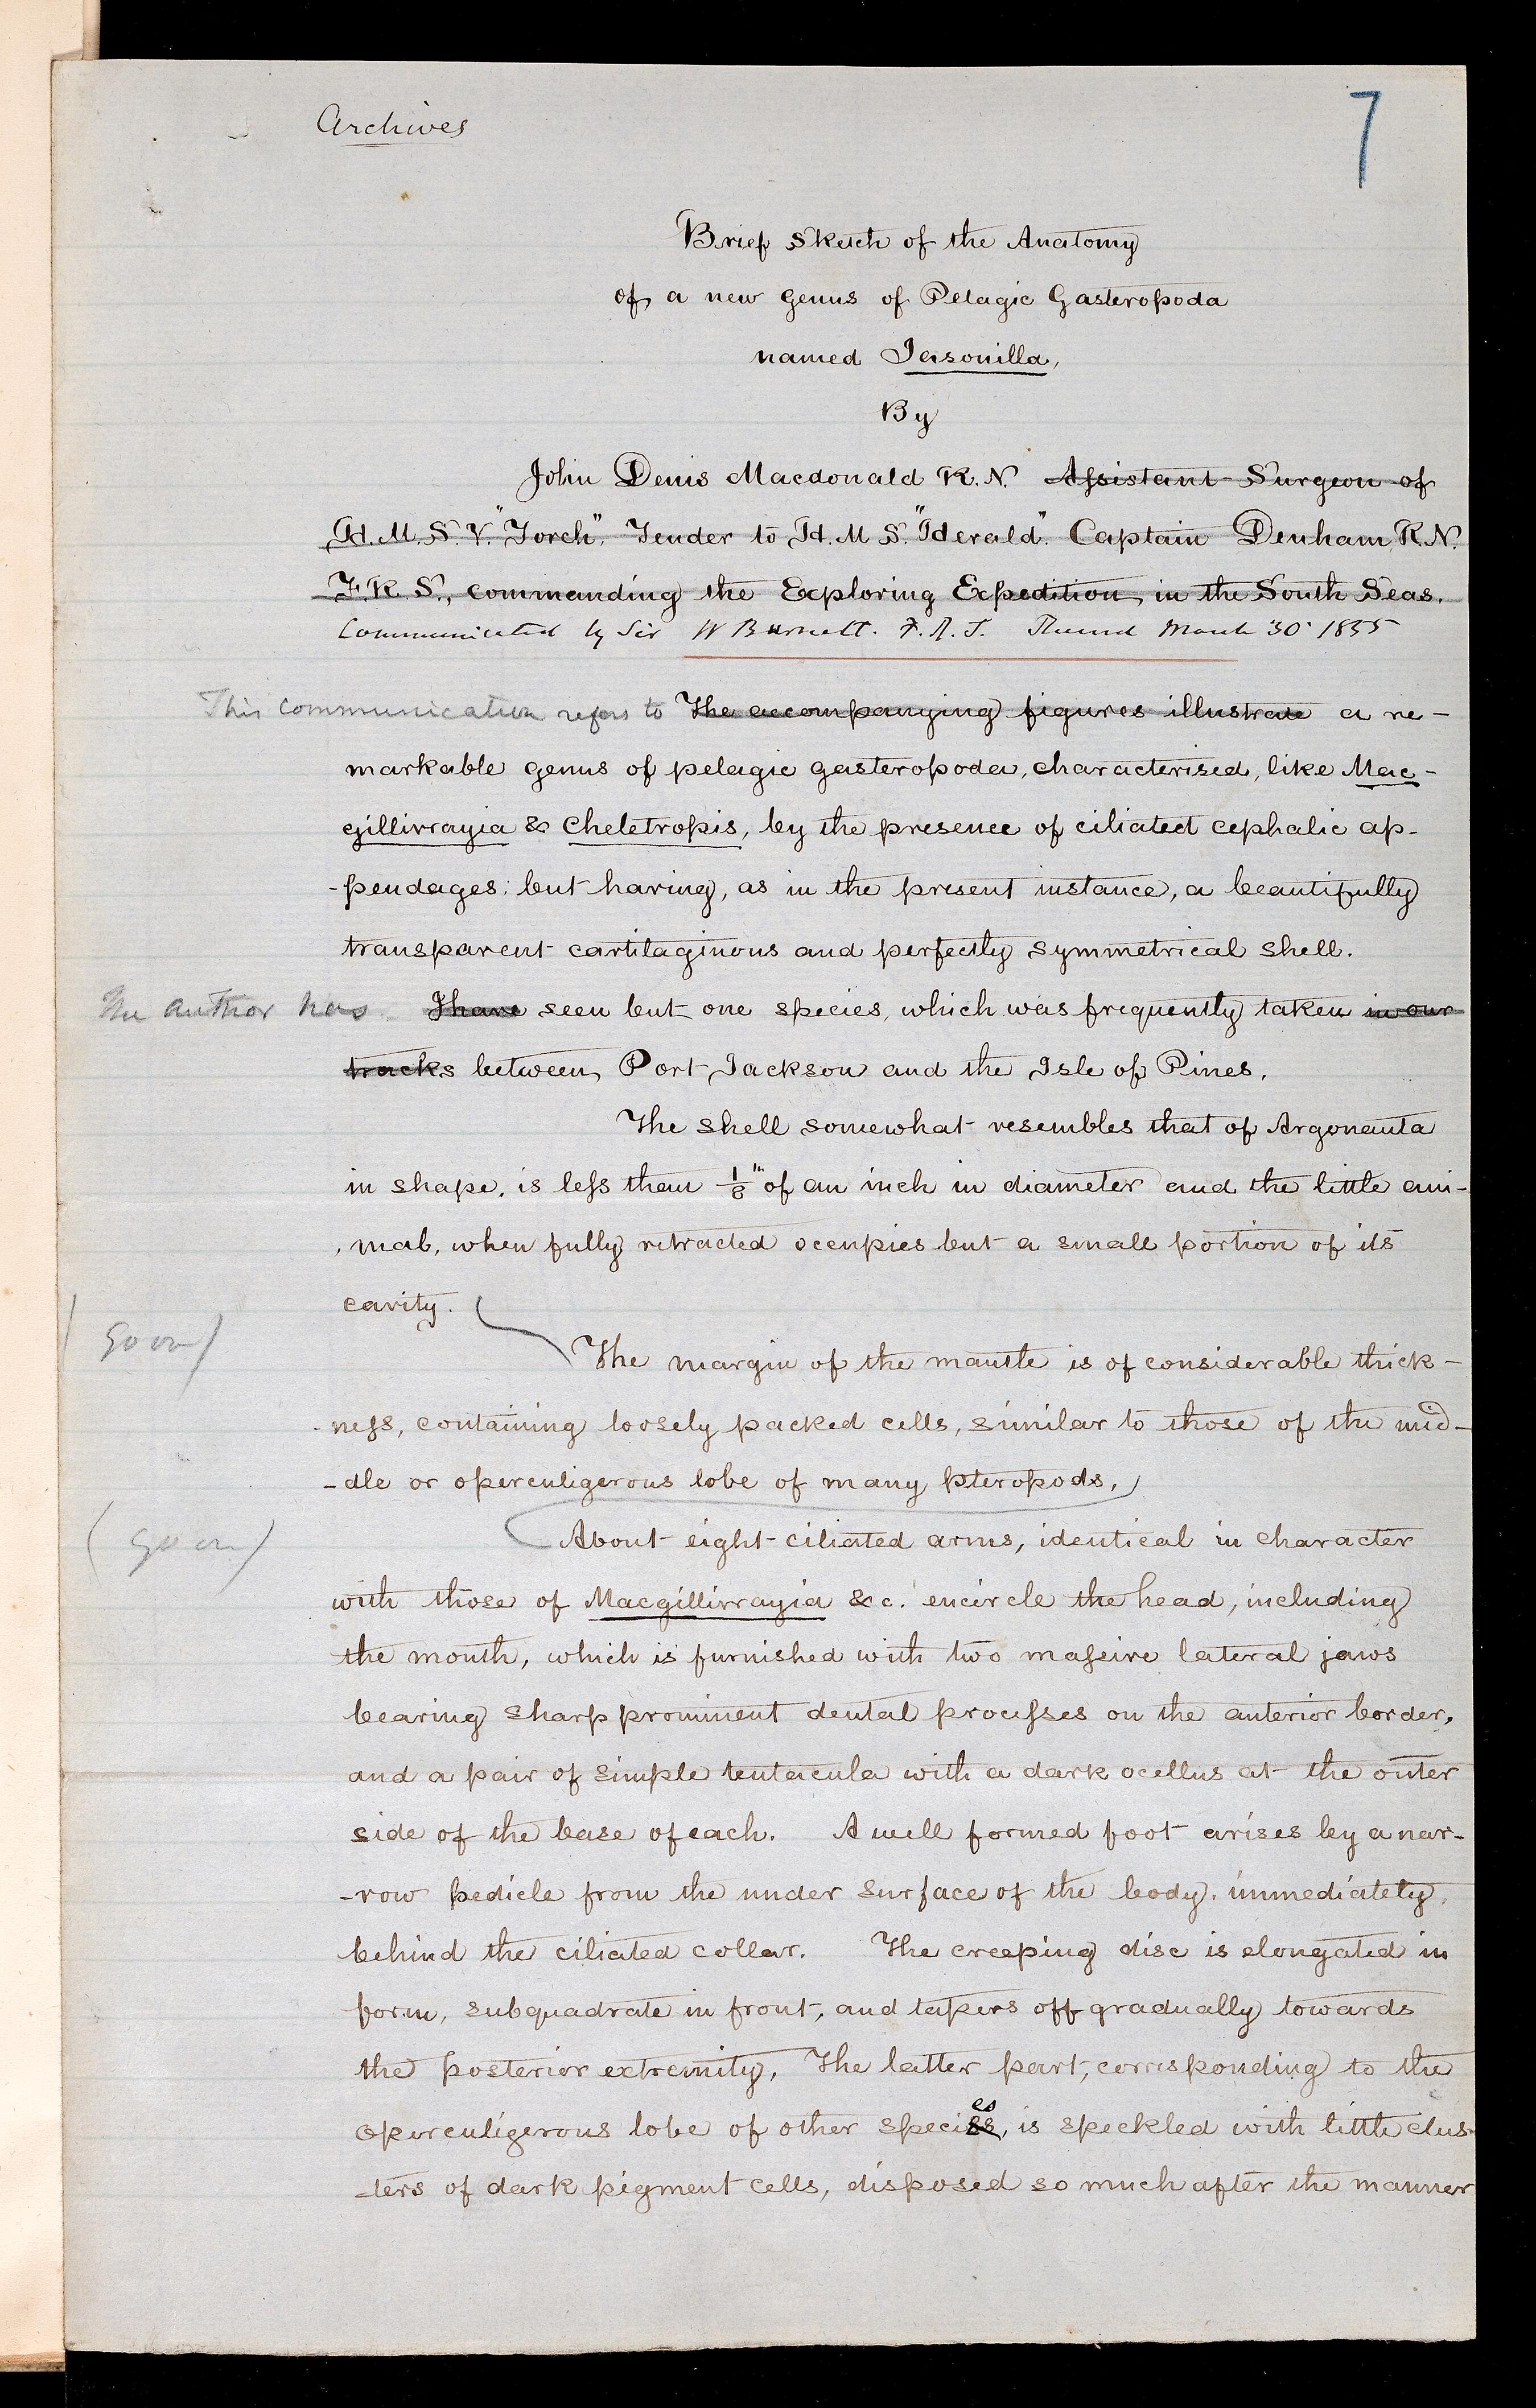 Archives
7
Brief Sketch of the Anatomy
of a new genus of Pelagic Gasteropoda
named Jasonilla,
By
John Denis Macdonald R.N. Assistant Surgeon of
H.M.S.V. "Torch", Tender to H.M.S. "Herald". Captain Denham, R.N.
F.R.S., commanding the Exploring Expedition, in the South Seas.
Communicated by Sir W Burnett. F.R.S. Received March 30 1855
This communication refers to The accompanying figures illustrate a re-
markable genus of pelagic gasteropoda, characterised, like Mac-
gillivrayia & Cheletropis, by the presence of ciliated cephalic ap-
-pendages; but having, as in the present instance, a beautifully
transparent cartilaginous and perfectly symmetrical shell.
The author has I have seen but one species, which was frequently taken in our
tracks between Port Jackson and the Isle of Pines.
The shell somewhat resembles that of Argonauta
in shape, is less than 1/8th of an inch in diameter and the little ani-
-mal, when fully retracted occupies but a small portion of its
cavity.
(Go on)
The margin of the mantle is of considerable thick-
-ness, containing loosely packed cells, similar to those of the mid-
-dle or operculigerous lobe of many pteropods.
(go on)
About eight ciliated arms, identical in character
with those of Macgillivrayia &c. encircle the head, including
the mouth, which is furnished with two massive lateral jaws
bearing sharp prominent dental processes on the anterior border,
and a pair of simple tentacula with a dark ocellus at the outer
side of the base of each. A well formed foot arises by a nar-
-row pedicle from the under surface of the body, immediately
behind the ciliated collar. The creeping disc is elongated in
form, subquadrate in front, and tapers off gradually towards
the posterior extremity. The latter part, corresponding to the
operculigerous lobe of other species, is speckled with little clus-
-ters of dark pigment cells, disposed so much after the manner